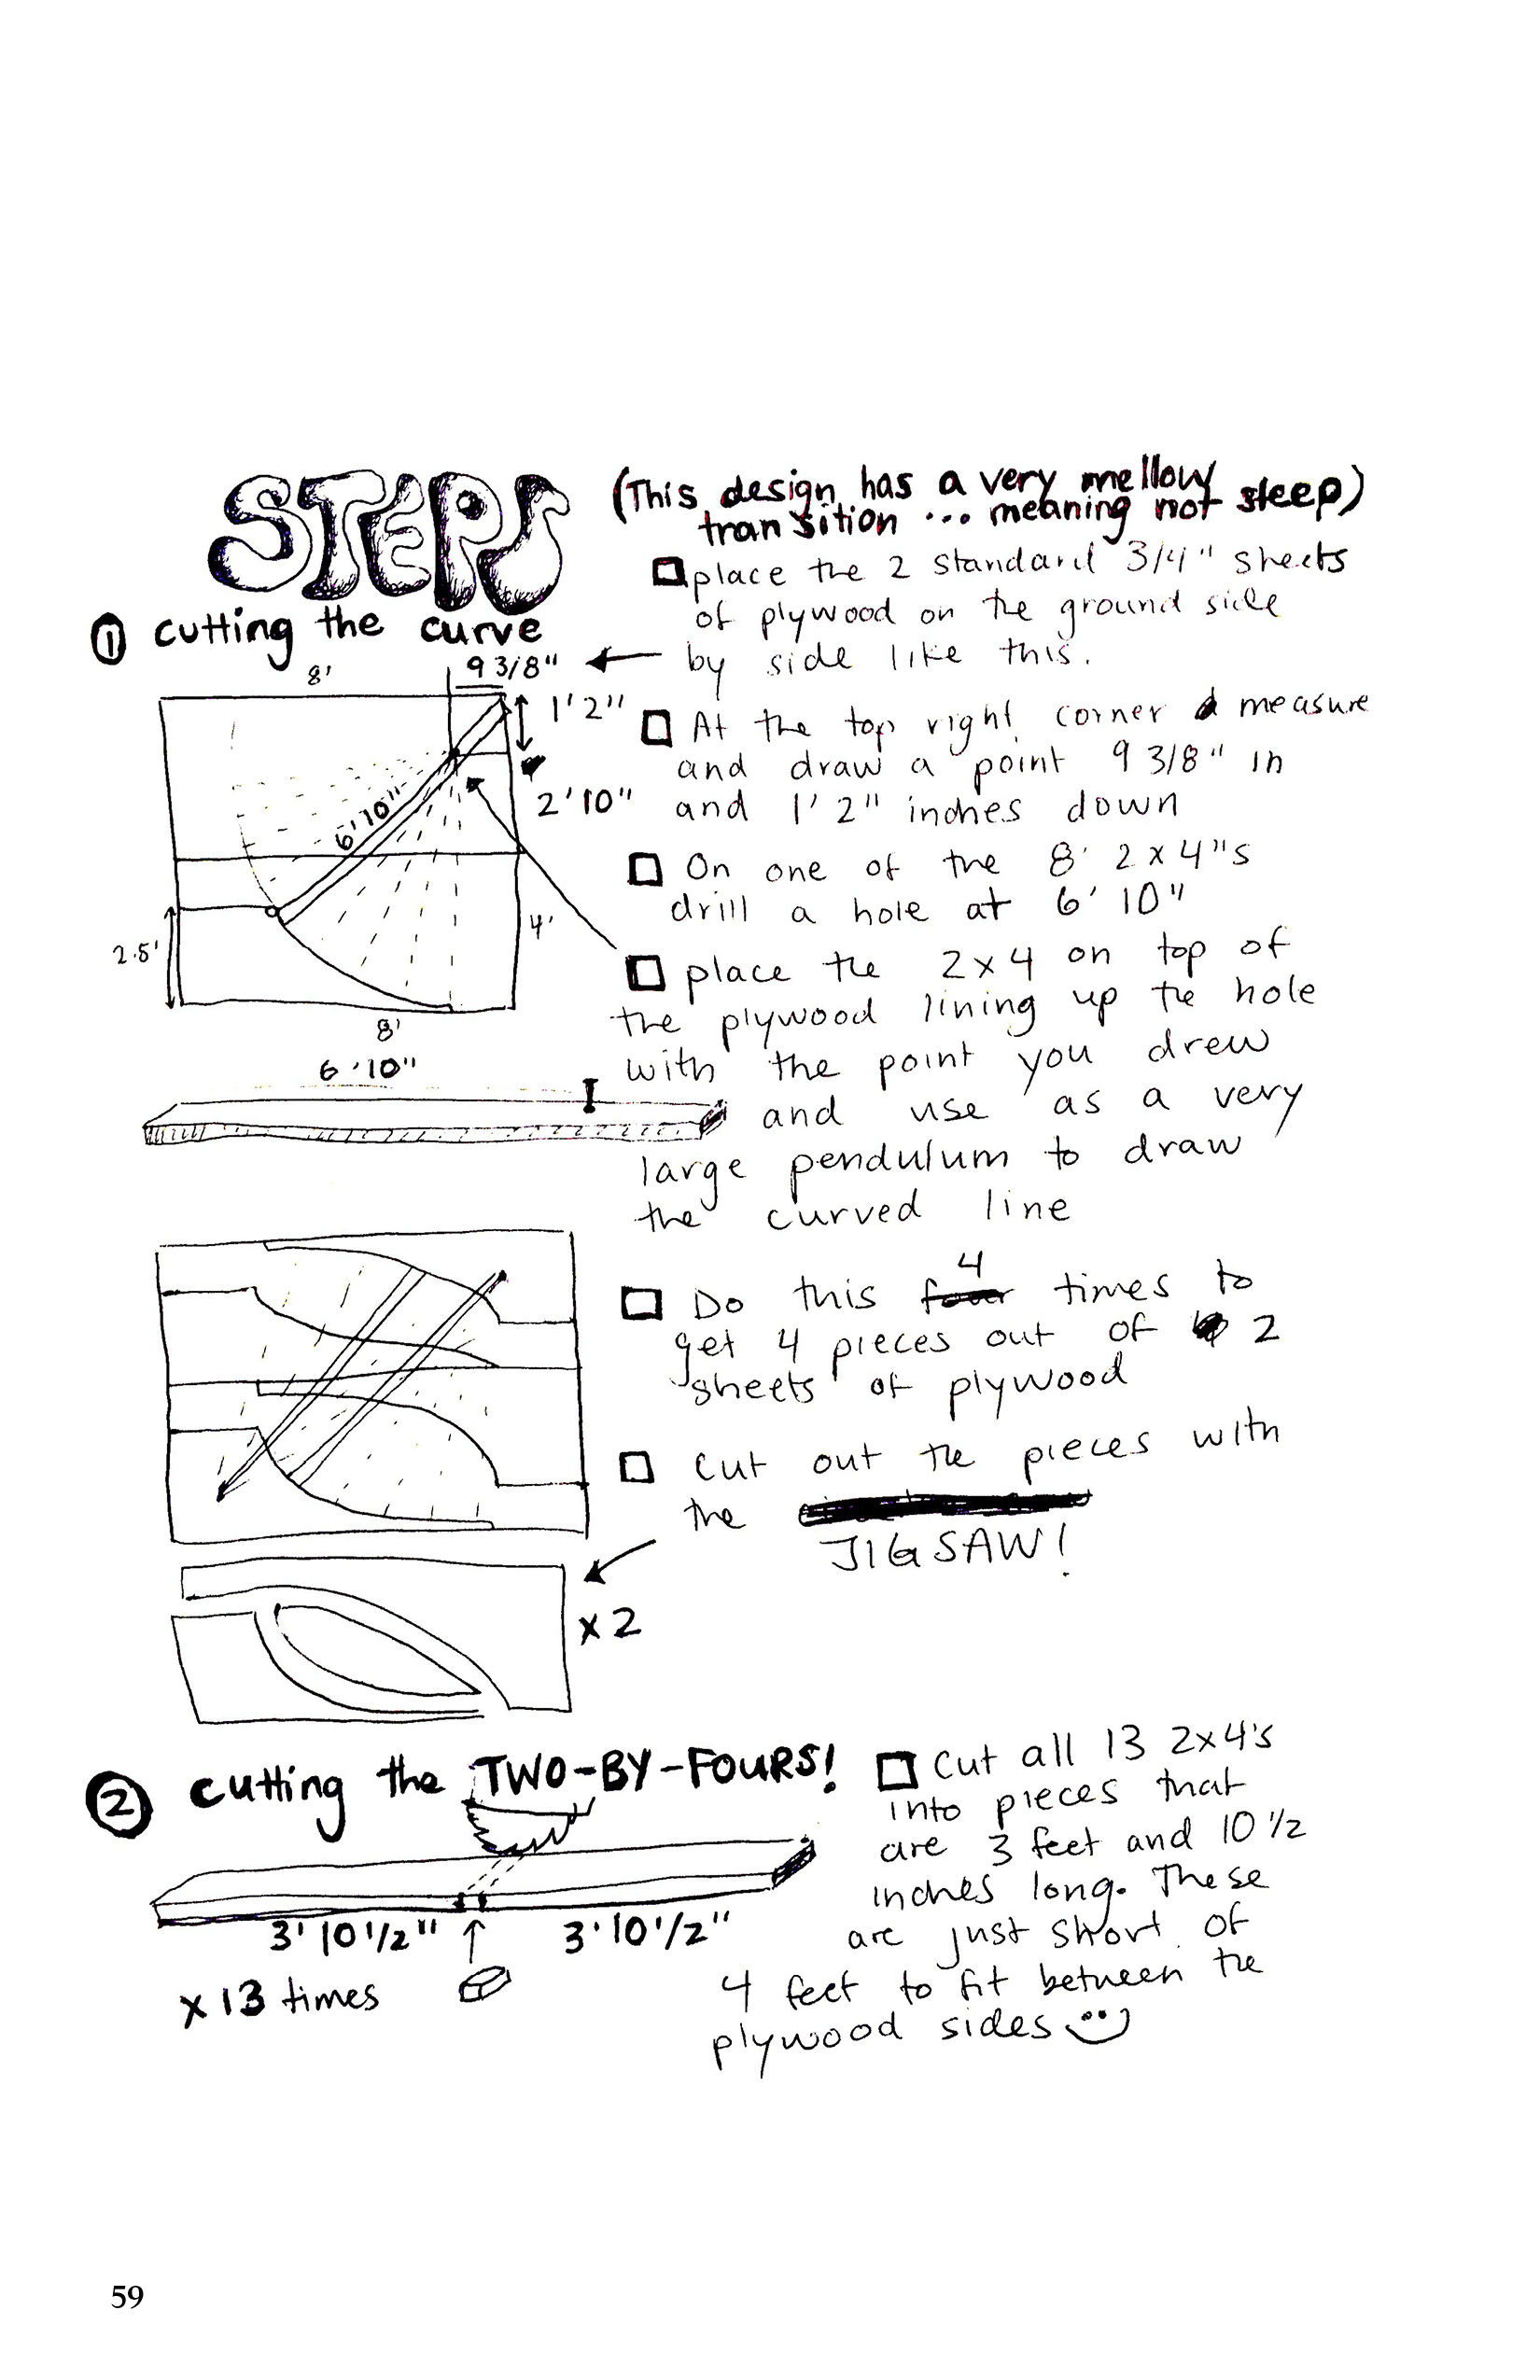 STEPS
(This design has a very mellow
transition ... meaning not steep)
① cutting the curve
place the 2 standard 3/4" sheets
of plywood on the ground side
by side like this.
8'
9 3/8"
1'2"
2'10"
6'10"
4'
2.5'
8'
At the top right corner measure
and draw a point 9 3/8" in
and 1'2" inches down
On one of the 8' 2x4"s
drill a hole at 6'10"
place the 2x4 on top of
the plywood lining up the hole
with the point you drew
and use as a very
large pendulum to draw
the curved line
6'10"
Do this 4 times to
get 4 pieces out of 2
sheets of plywood
Cut out the pieces with
the
JIGSAW!
x2
② cutting the TWO-BY-FOURS!
Cut all 13 2x4's
into pieces that
are 3 feet and 10 1/2
inches long. These
are just short of
4 feet to fit between the
plywood sides
3'10 1/2"
3'10 1/2"
x 13 times
59